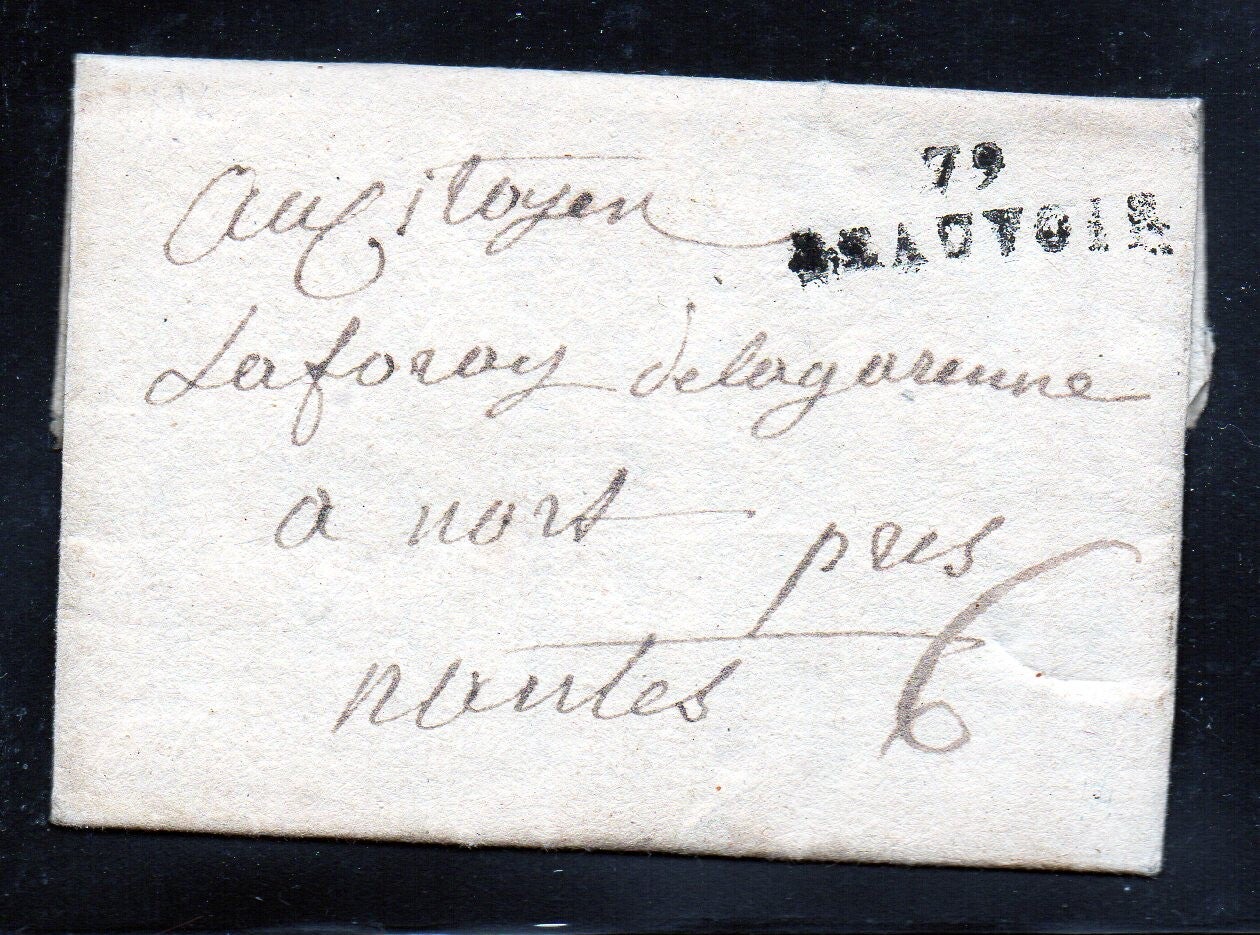 79
BEAUVOIR
Au Citoyen
Laforay delagarenne
a nort
pres
nantes
6